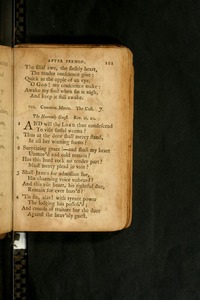 AFTER SERMON. 101
The filial awe, the fleshly heart,
The tender conscience give:
Quick as the apple of an eye,
O God! my conscience make:
Awake my soul when sin is nigh,
And keep it still awake.
Common Metre. The Call. 7.
The Heavenly Guest. Rev. iii. 20.
1 AND will the Lord thus condescend
To visit sinful worms?
Thus at the door shall mercy stand,
In all her winning forms?
2 Surprising grace!—and shall my heart
Unmov'd and cold remain?
Has this hard rock no tender part?
Must mercy plead in vain?
3 Shall Jesus for admission sue,
His charming voice unheard?
And this vile heart, his rightful due,
Remain for ever barr'd?
4 'Tis sin, alas! with tyrant power
The lodging has possess'd;
And crowds of traitors bar the door
Against the heav'nly guest.